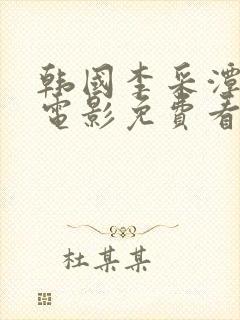 韩國李采潭
電影免費看
杜某某